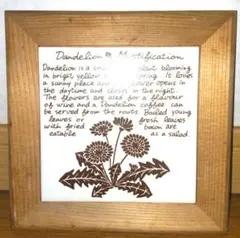 Dandelion
Dandelion is a plant blooming
in bright yellow in spring. It loves
a sunny place and flower opens in
the daytime and closes in the night.
The flowers are used for a flavour
of wine and a Dandelion coffee can
be served from the roots. Boiled young
leaves or fresh leaves
with fried bacon are
eatable as a salad.